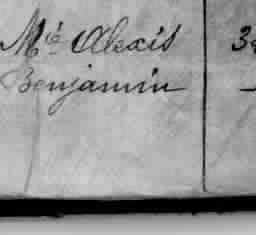 Mie Alexis
Benjamin